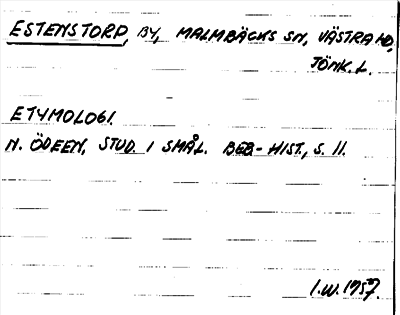 ESTENSTORP, BY, MALMBÄCKS SN, VÄSTRA HD,
JÖNK. L.
ETYMOLOGI.
N. ÖDEEN, STUD. I SMÅL. BEB-HIST, S. 11.
I.W. 1957.